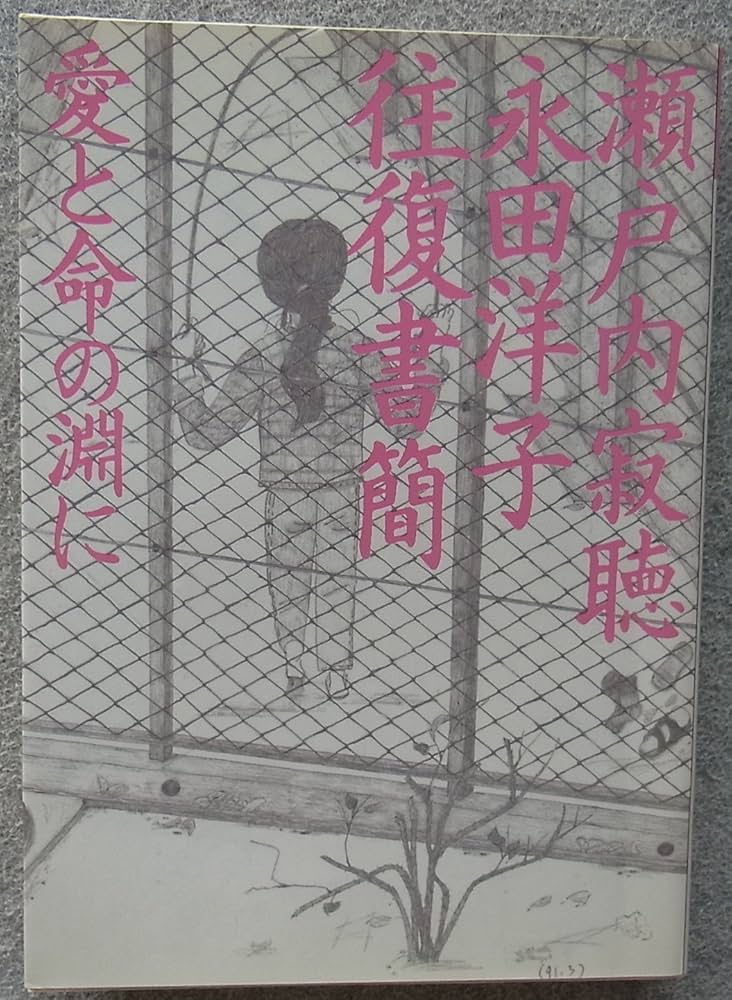 瀬戸内寂聴
永田洋子
往復書簡
愛と命の淵に
('91.3)